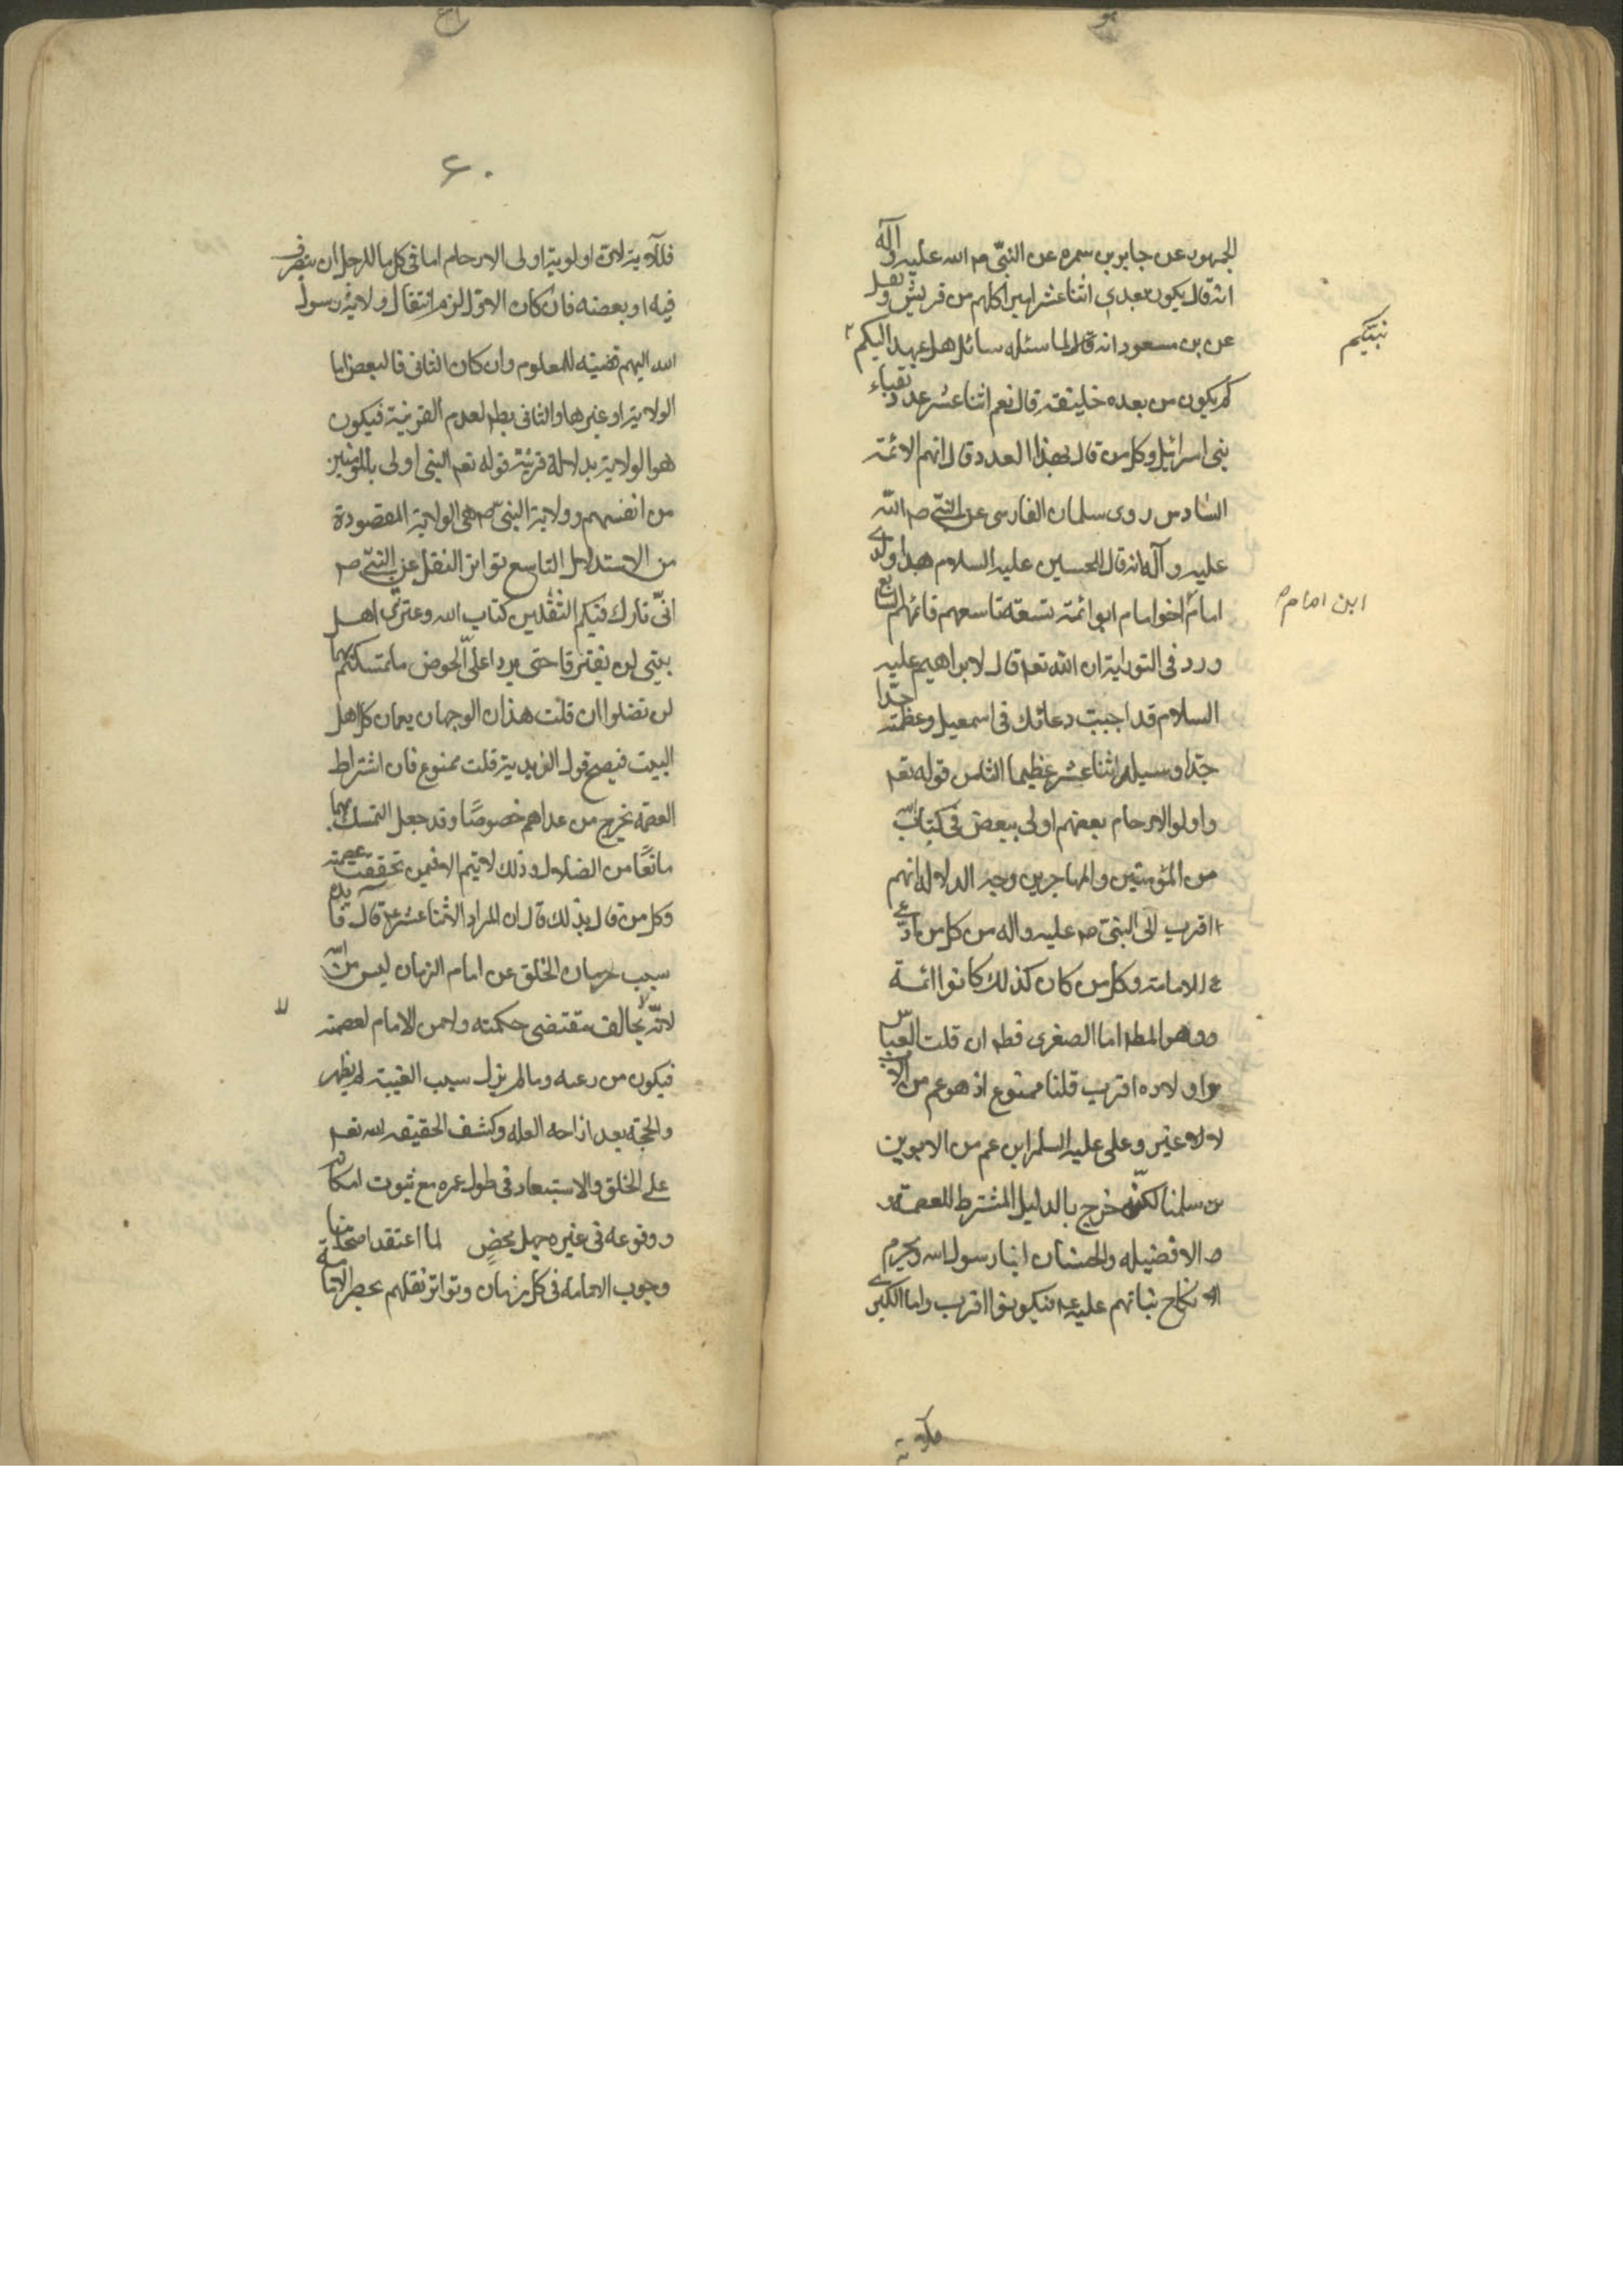 الجمهور عن جابر بن سمره عن النبّی صم الله علیه وآله
انه قال یکون بعدی اثنا عشر امیرا کلهم من قریش ونقل
عن بن مسعود انه قال لما سئله سائل هل عهد الیکم
نبیّکم
کم یکون من بعده خلیفة قال نعم اثنا عشر عدد نقباء
بنی اسرائیل وکل من قال بهذا العدد قال انهم الائمة
السّادس روی سلمان الفارسی عن النبّی صم الله
علیه وآله انه قال للحسین علیه السلام هذا ولدی
امام اخو امام ابو ائمة تسعة تاسعهم قائمهم السابع
ابن امام
ورد فی التوراية ان الله تعم قال لابراهیم علیه
السلام قد اجبت دعائک فی اسمعیل وعظمته جدّا
جدّا وسیلد اثنا عشر عظیما الثامن قوله تعم
واولوا الارحام بعضهم اولی ببعض فی کتاب الله
من المؤمنین والمهاجرین وجه الدلاله انهم
اقرب الی النبیّ صم علیه واله من کل من ادّعی
الامامة وکل من کان کذلک کانوا ائمة
وهو المطم اما الصغری فطم ان قلت العباس
واولاده اقرب قلنا ممنوع اذ هو عم من الاب
لا غیر وعلی علیه السلم ابن عم من الابوین
سلمنا لکنّه خرج بالدلیل المشترط للعصمة
الافضیله والحسنان ابنا رسول الله ویحرم
نکاح بناتهم علیه فیکونوا اقرب واما الکبری
۶۰
فللآیة لان اولویة اولی الارحام اما فی کل ما للرجل ان یتصرف
فیه او بعضه فان کان الاوّل لزم انتقال ولایة رسول
الله الیهم قضیة للمعلوم وان کان الثانی فالبعض اما
الولایة او غیرها والثانی بطم لعدم القرینة فیکون
هو الولایة بدلالة قرینة قوله تعم النبی اولی بالمؤمنین
من انفسهم وولایة النبیّ صم هی الولایة المقصودة
من الاستدلال التاسع تواتر النقل عن النبّی صم
انّی تارک فیکم الثقلین کتاب الله وعترتی اهل
بیتی لن یفترقا حتی یردا علیّ الحوض ما تمسکتم بهما
لن تضلوا ان قلت هذان الوجهان یعمان کل اهل
البیت فیصح قول الزیدیة قلت ممنوع فان اشتراط
العصمة یخرج من عداهم خصوصًا وقد جعل التمسک بهما
مانعًا من الضلال وذلک لا یتم الا فیمن تحققت عصمته
وکل من قال بذلک قال ان المراد الاثنا عشریة قال فایدة
سبب حرمان الخلق عن امام الزمان لیس من الله
لانّه لا یخالف مقتضی حکمته ولا من الامام لعصمته
فیکون من رعیه وما لم یزل سبب الغیبة لم یظهر
والحجة بعد ازاحه العله وکشف الحقیقه لله تعم
علی الخلق والاستبعاد فی طول عمره مع ثبوت امکانه
ووقوعه فی غیره جهل محض لما اعتقد اصحابنا
وجوب الامامه فی کل زمان وتواتر نقلهم بحصر الامامة